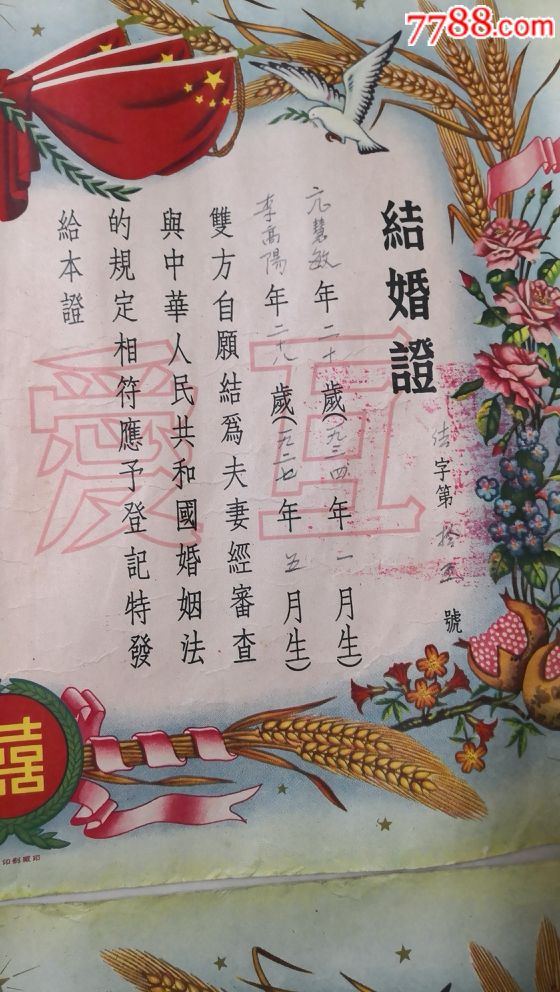 7788.com
結婚證
結字第拾五號
亢慧敏年二十歲(一九三四年一月生)
李高陽年二十九歲(一九二七年五月生)
雙方自願結爲夫妻經審查
與中華人民共和國婚姻法
的規定相符應予登記特發
給本證
互愛
囍